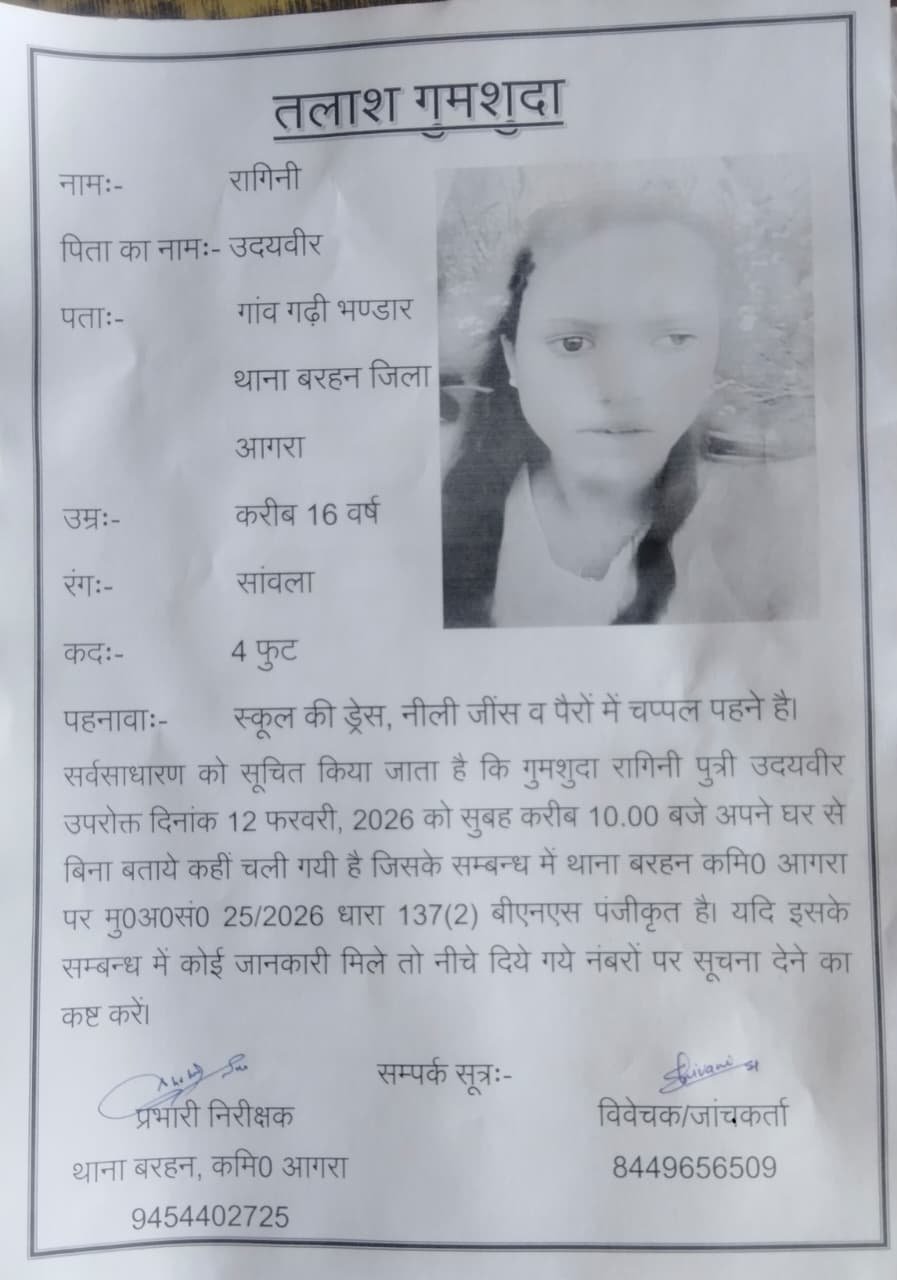 तलाश गुमशुदा
नामः- रागिनी
पिता का नामः- उदयवीर
पताः- गांव गढ़ी भण्डार
थाना बरहन जिला
आगरा
उम्रः- करीब 16 वर्ष
रंगः- सांवला
कदः- 4 फुट
पहनावाः- स्कूल की ड्रेस, नीली जींस व पैरों में चप्पल पहने है।
सर्वसाधारण को सूचित किया जाता है कि गुमशुदा रागिनी पुत्री उदयवीर
उपरोक्त दिनांक 12 फरवरी, 2026 को सुबह करीब 10.00 बजे अपने घर से
बिना बताये कहीं चली गयी है जिसके सम्बन्ध में थाना बरहन कमि0 आगरा
पर मु0अ0सं0 25/2026 धारा 137(2) बीएनएस पंजीकृत है। यदि इसके
सम्बन्ध में कोई जानकारी मिले तो नीचे दिये गये नंबरों पर सूचना देने का
कष्ट करें।
सम्पर्क सूत्रः- Shivani
प्रभारी निरीक्षक विवेचक/जांचकर्ता
थाना बरहन, कमि0 आगरा 8449656509
9454402725